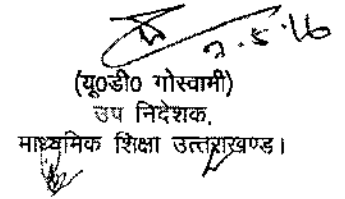 7.5.16
(यू०डी० गोस्वामी)
उप निदेशक,
माध्यमिक शिक्षा उत्तराखण्ड।